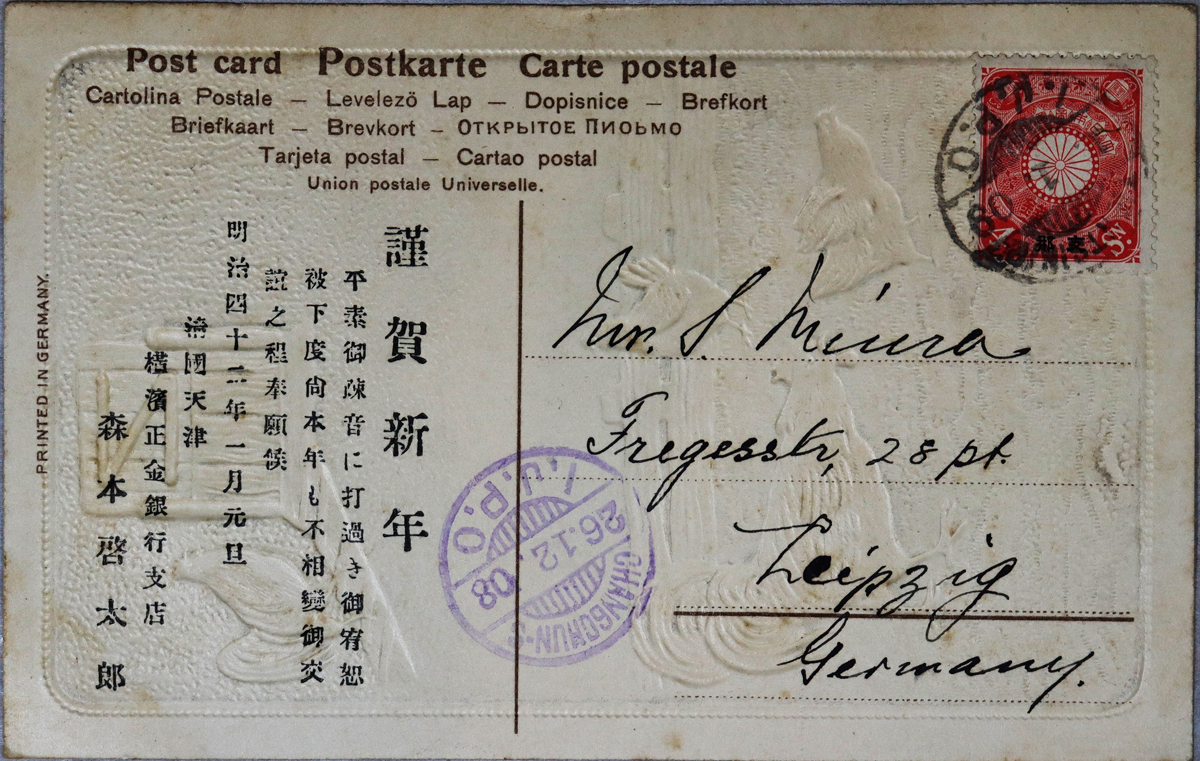 Post card Postkarte Carte postale
Cartolina Postale – Levelező Lap – Dopisnice – Brefkort
Briefkaart – Brevkort – ОТКРЫТОЕ ПИОЬМО
Tarjeta postal – Cartao postal
Union postale Universelle.
PRINTED IN GERMANY.
謹賀新年
平素御疎音に打過き御宥恕
被下度尙本年も不相變御交
誼之程奉願候
明治四十二年一月元旦
淸國天津
橫濱正金銀行支店
森本啓太郎
Mr. S. Miura
Fregesstr, 28 pt.
Leipzig
Germany.
I.J.P.O.
26.12.08
CHANGCHUN-S
I.J.P.O
4 Sn.
支那